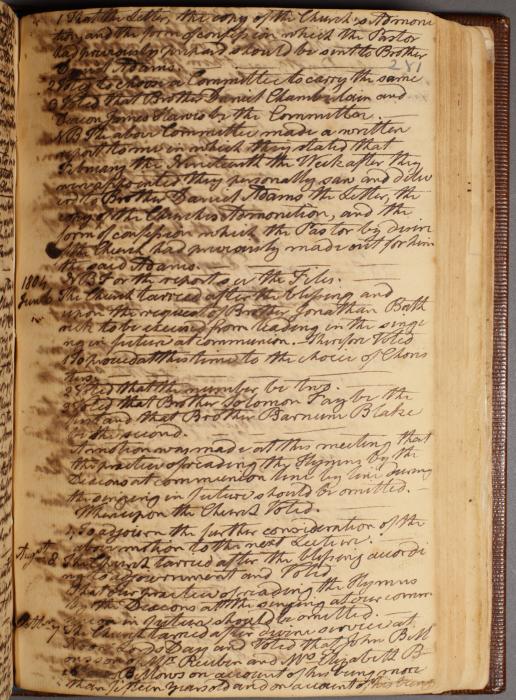 1 That the Letter, the copy of the Church's Admoni
tion, and the form of confession which the Pastor
had previously prepared should be sent to Brother
Daniel Adams.
281
2 Voted to choose a Committee to carry the same
3 Voted that Brother Daniel Chamberlain and
Deacon James Hawes be the Committee.
NB The above Committee made a written
report to me in which they stated that
February the Nineteenth the Week after they
were appointed they personally saw and deliv
ered to Brother Daniel Adams the Letter, the
copy of the Churches Admonition, and the
form of confession which the Pastor by desire
of the Church had previously made out for him
the said Adams.
NB For the report see the Files.
1804
June
The Church tarried after the blessing and
upon the request of Brother Jonathan Bath
rick to be excused from leading in the singi
ng in future at communion. Therefore Voted
1 To proceed at this time to the choice of Choris
ters.
2 Voted that the number be two.
3 Voted that Brother Solomon Fay be the
first and that Brother Barnum Blake
be the second.
A motion was made at this meeting that
the practice of reading the Hymns by the
Deacons at communion line by line during
the singing in future should be omitted.
Whereupon the Church Voted.
To adjourn the further consideration of the
above motion to the next Lecture.
August
8 The Church tarried after the blessing accordi
ng to adjournment and Voted
That our practice of reading the Hymns
by the Deacons at the singing at our comm
union in future should be omitted.
7 The Church tarried after divine service at
Lords Day and Voted that John B M
Mr. Reuben and Mrs Elizabeth B
Bellows on account of his being more
than fifteen years old and on account of his being